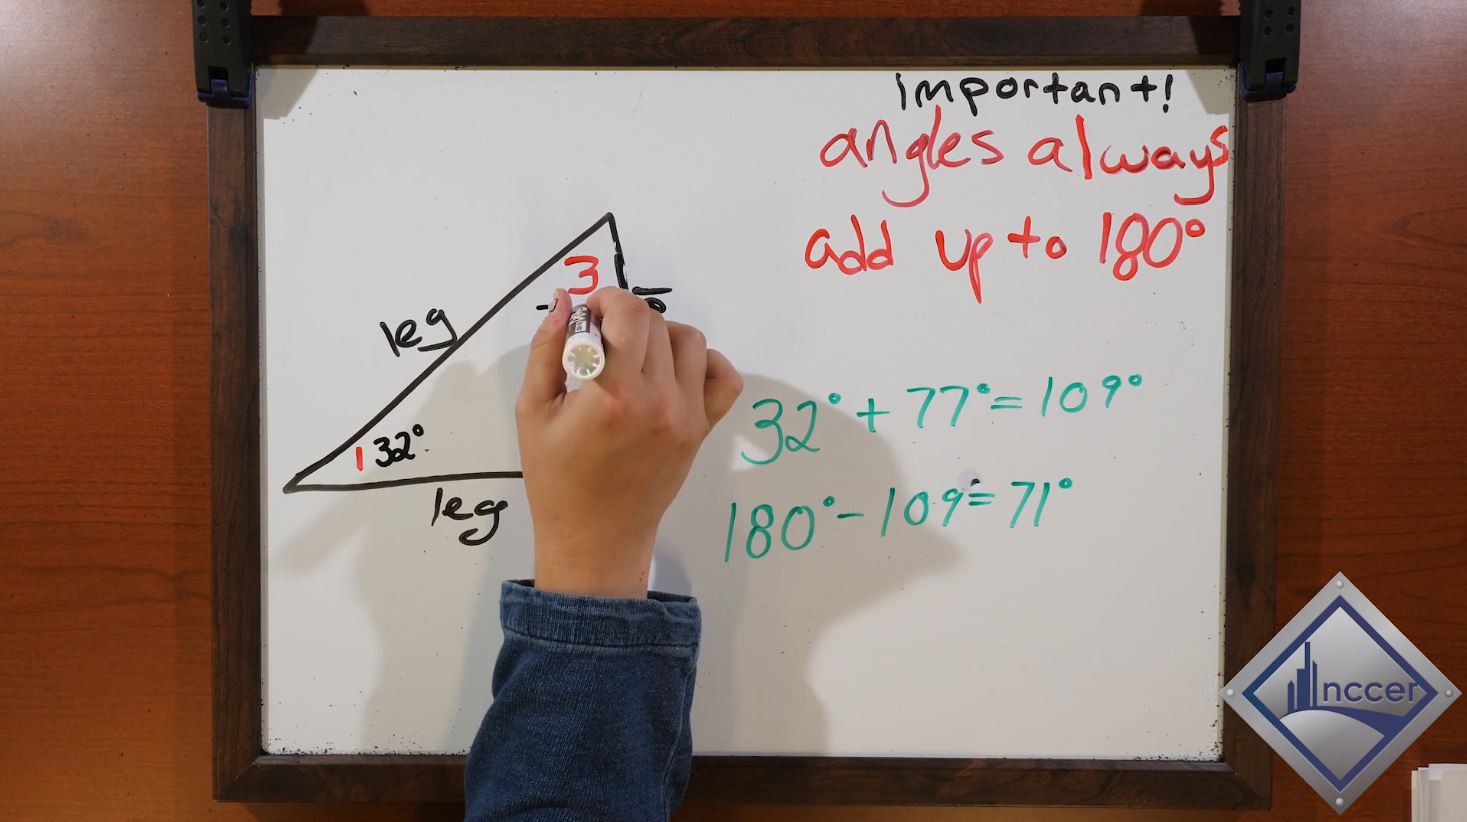 Important!
angles always
add up to 180°
3
leg
32° + 77° = 109°
1 32°
leg
180° - 109° = 71°
nccer